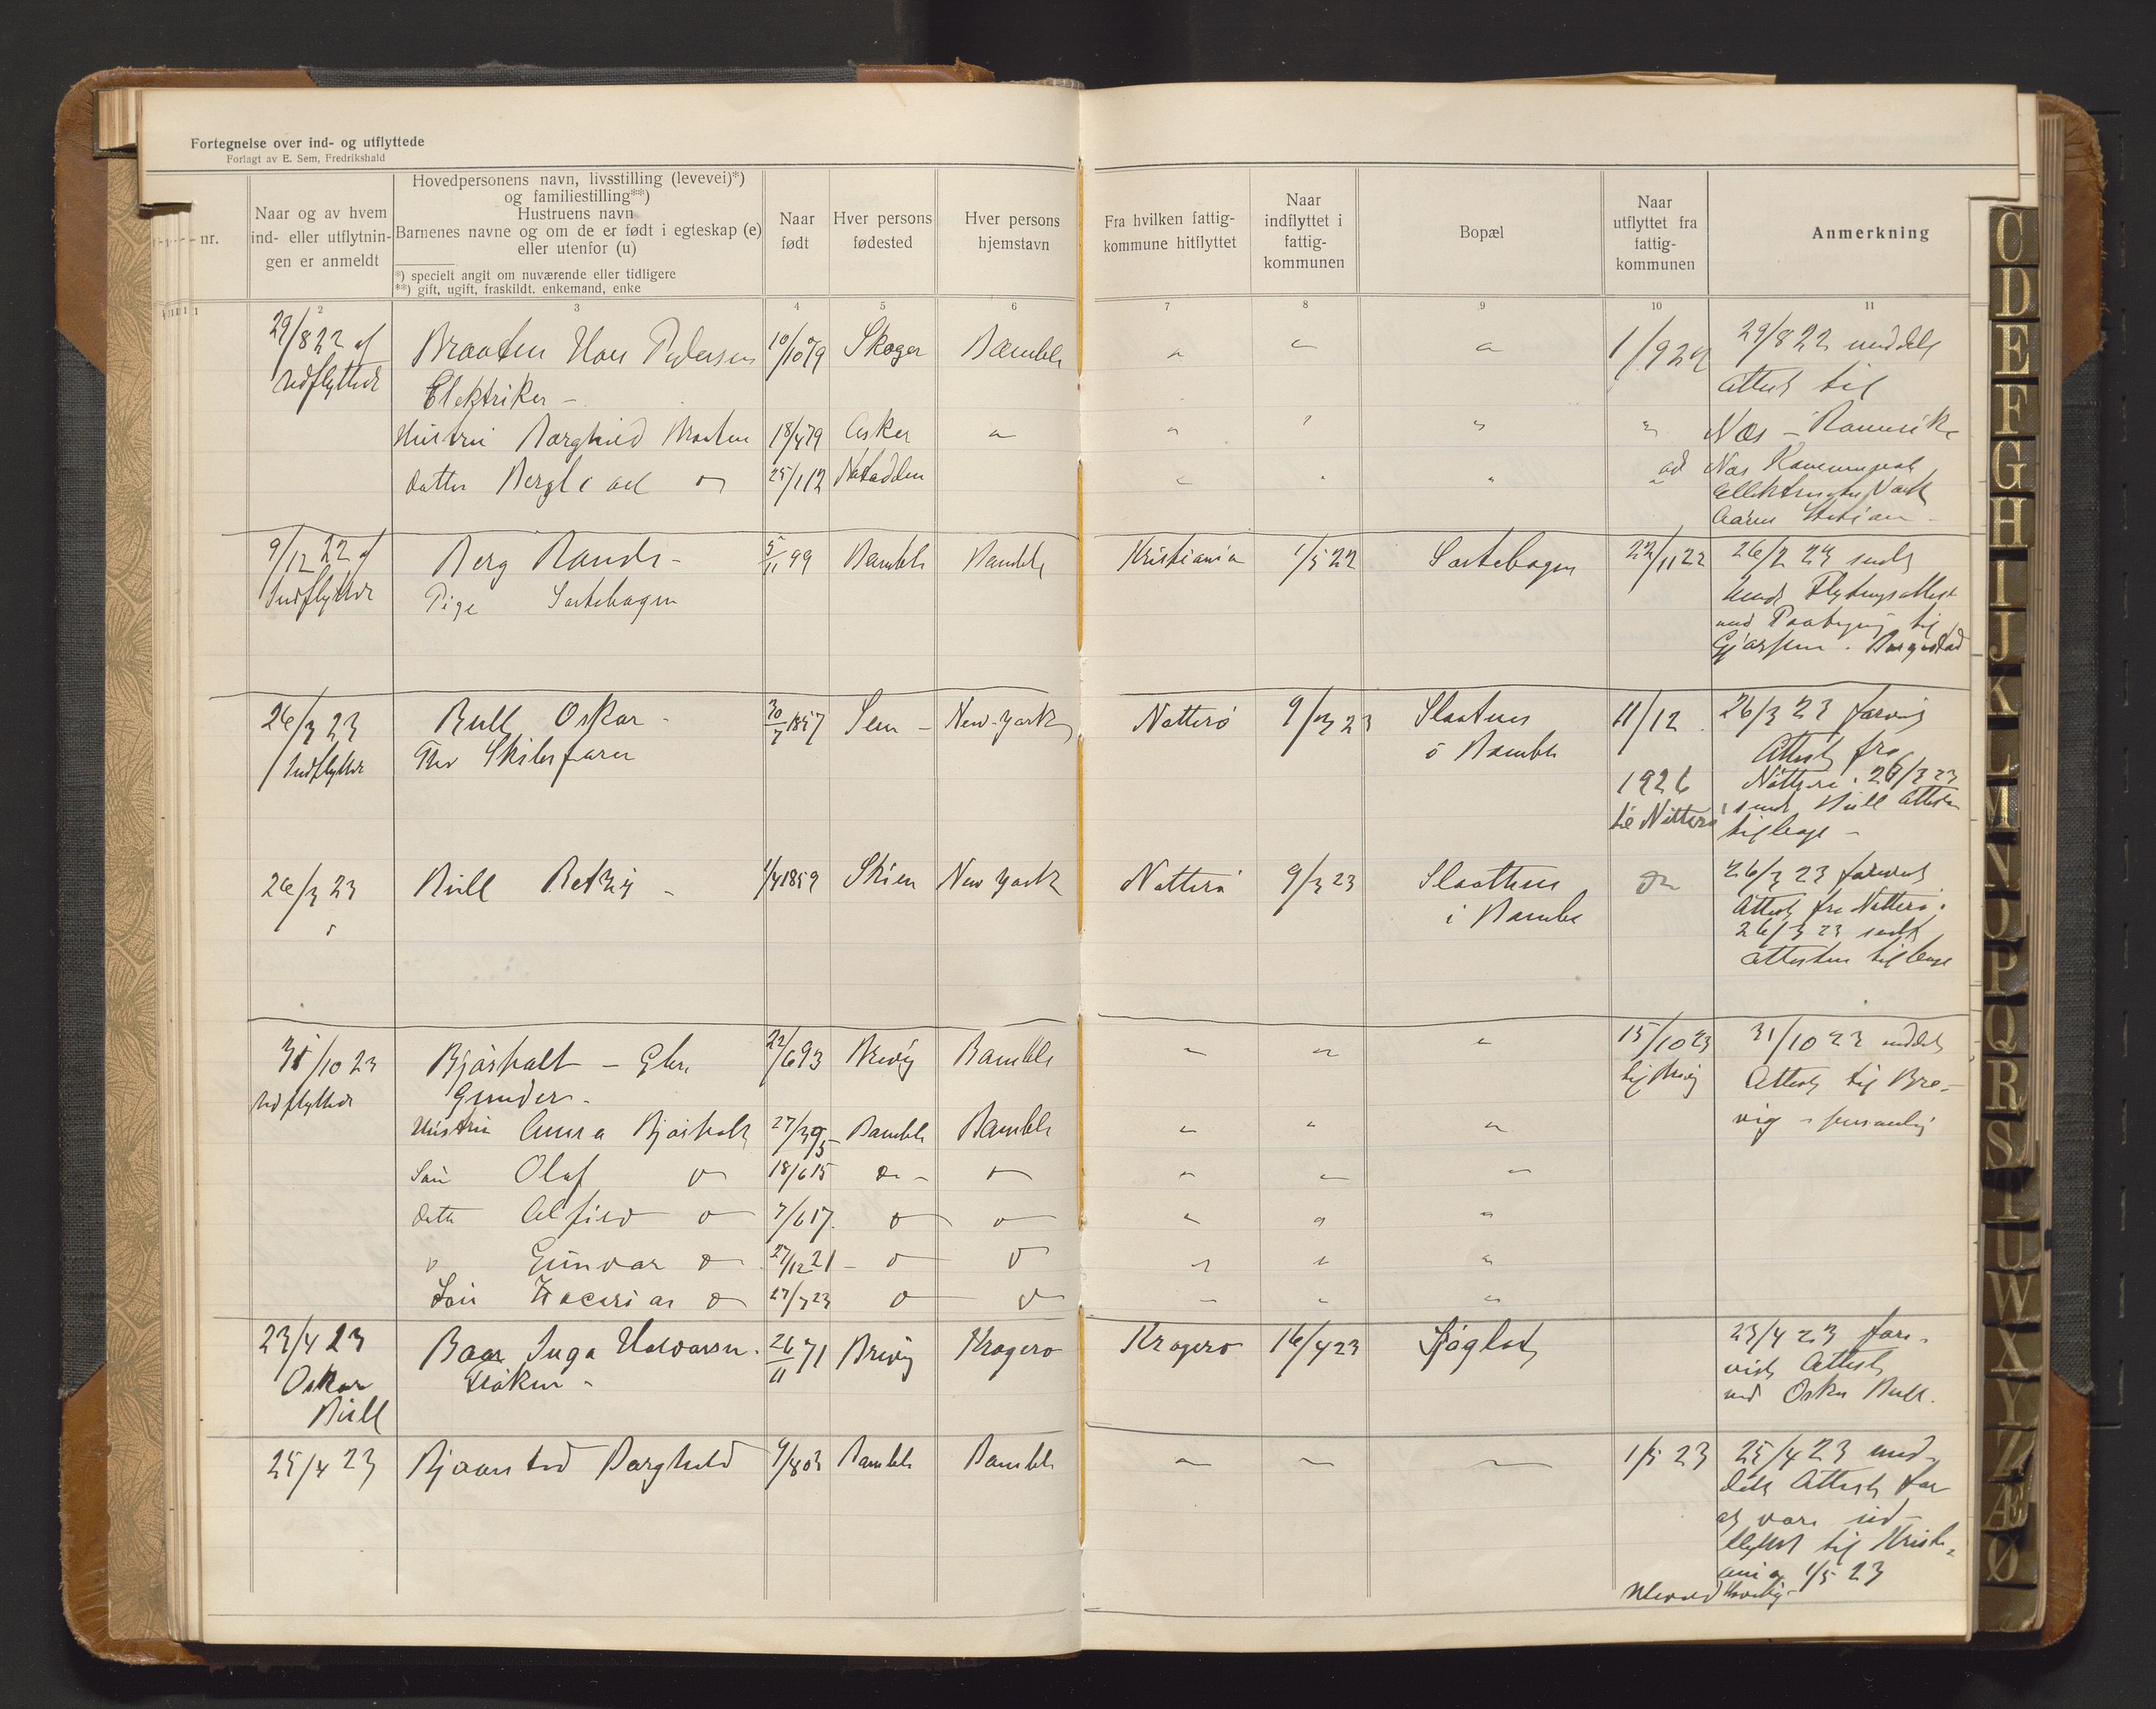 Fortegnelse over ind- og utflyttede
Forlagt av E. Sem, Fredrikshald
nr.
Naar og av hvem
ind- eller utflytnin-
gen er anmeldt
Hovedpersonens navn, livsstilling (levevei)*)
og familiestilling**)
Hustruens navn
Barnenes navne og om de er født i egteskap (e)
eller utenfor (u)
*) specielt angit om nuværende eller tidligere
**) gift, ugift, fraskildt. enkemand, enke
Naar
født
Hver persons
fødested
Hver persons
hjemstavn
Fra hvilken fattig-
kommune hitflyttet
Naar
indflyttet i
fattig-
kommunen
Bopæl
Naar
utflyttet fra
fattig-
kommunen
Anmerkning
1 2 3 4 5 6 7 8 9 10 11
29/8 22 af Braaten Hans Pedersen 10/10 79 Skoger Bamble " " " 1/9 22 29/8 22 meddelt
Udflyttede Elektriker – Attest til
Hustru Borghild Braaten 18/4 79 Asker " " " " " Næs – Romerike
datter Bergliot do 25/1 12 Notodden " " "
9/12 22 af Berg Randi – 5/11 99 Bamble Bamble Kristiania 1/5 22 Sortebogen 22/11 22 26/2 23 sendt
Indflyttede Pige Sortebogen
hende Flytningsattest
med Paategning til
Gjerpen. Borgestad
26/3 23 Bull Oskar – 30/7 1857 Sem – New-York Nøtterø 9/3 23 Slaatnes 11/12 26/3 23 forevist
Indflyttede fhv Skibsfører i Bamble Attest fra
1926 Nøtterø. 26/3 23
til Nøtterø sendt Bull Attesten
tilbage –
26/3 23 Bull Betzy – 1/4 1859 Skien New York Nøtterø 9/3 23 Slaatnes do 26/3 23 forevist
" i Bamble Attest fra Nøtterø.
26/3 23 sendt
attesten tilbage
31/10 23 Bjørkholt – 22/6 93 Brevig Bamble " " " 15/10 23 31/10 23 meddelt
Udflyttede Gunder – til Brevig Attest til Bre-
Hustru Anna Bjørkholt 27/3 95 – Bamble Bamble " " " vig – personlig
Søn Olaf do 18/6 15 do – do " " "
datter do 7/6 17 do do " " "
" Gunvor do 27/12 21 – do do " " "
Søn Zacarias do 27/7 23 do do " " "
23/4 23 Boe Inga Halvorsen. 26/11 71 Brevig Kragerø Kragerø 16/4 23 23/4 23 fore-
Oskar vist Attest
Bull ved Oskar Bull.
25/4 23 Bjaanstad Borghild 4/8 03 Bamble Bamble " " " 1/5 23 25/4 23 med-
delt Attest for
at være ud-
flyttet til Kristi-
ania 1/5 23
C
D
E
F
G
H
I
J
K
L
M
N
O
P
Q
R
S
T
U
W
X
Y
Z
Æ
Ø